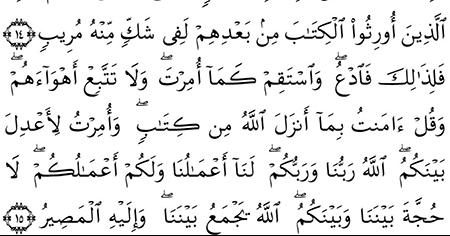 ٱلَّذِينَ أُورِثُوا۟ ٱلْكِتَٰبَ مِنۢ بَعْدِهِمْ لَفِى شَكٍّ مِّنْهُ مُرِيبٍ ﴿١٤﴾
فَلِذَٰلِكَ فَٱدْعُ ۖ وَٱسْتَقِمْ كَمَآ أُمِرْتَ ۖ وَلَا تَتَّبِعْ أَهْوَآءَهُمْ ۖ
وَقُلْ ءَامَنتُ بِمَآ أَنزَلَ ٱللَّهُ مِن كِتَٰبٍ ۖ وَأُمِرْتُ لِأَعْدِلَ
بَيْنَكُمُ ۖ ٱللَّهُ رَبُّنَا وَرَبُّكُمْ ۖ لَنَآ أَعْمَٰلُنَا وَلَكُمْ أَعْمَٰلُكُمْ ۖ لَا
حُجَّةَ بَيْنَنَا وَبَيْنَكُمُ ۖ ٱللَّهُ يَجْمَعُ بَيْنَنَا ۖ وَإِلَيْهِ ٱلْمَصِيرُ ﴿١٥﴾